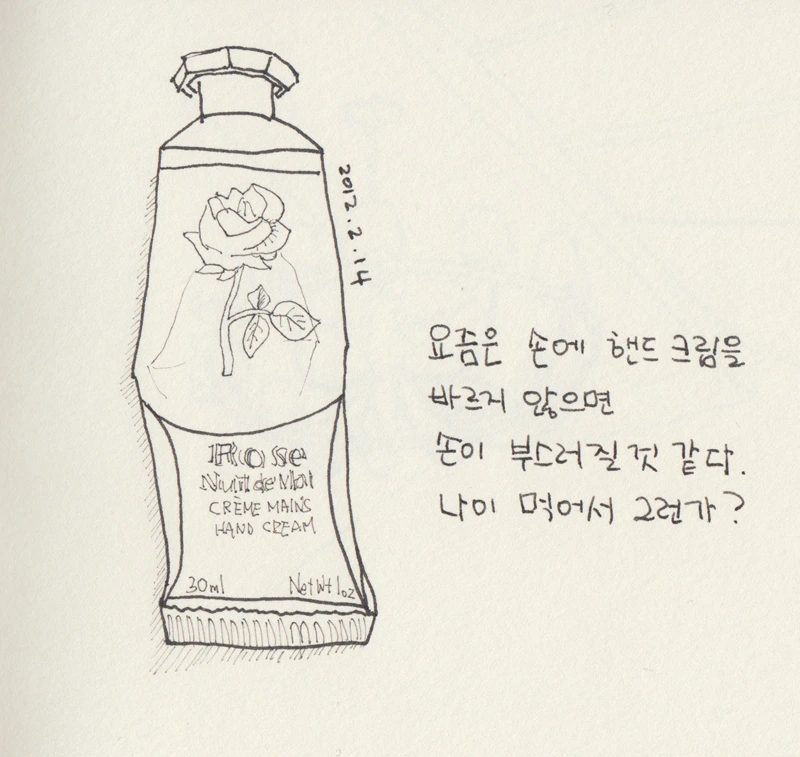 2012.2.14
요즘은 손에 핸드크림을
바르지 않으면
손이 부스러질 것 같다.
나이 먹어서 그런가?
Rose
Nuit de Mai
CRÈME MAINS
HAND CREAM
30ml Net Wt 1oz